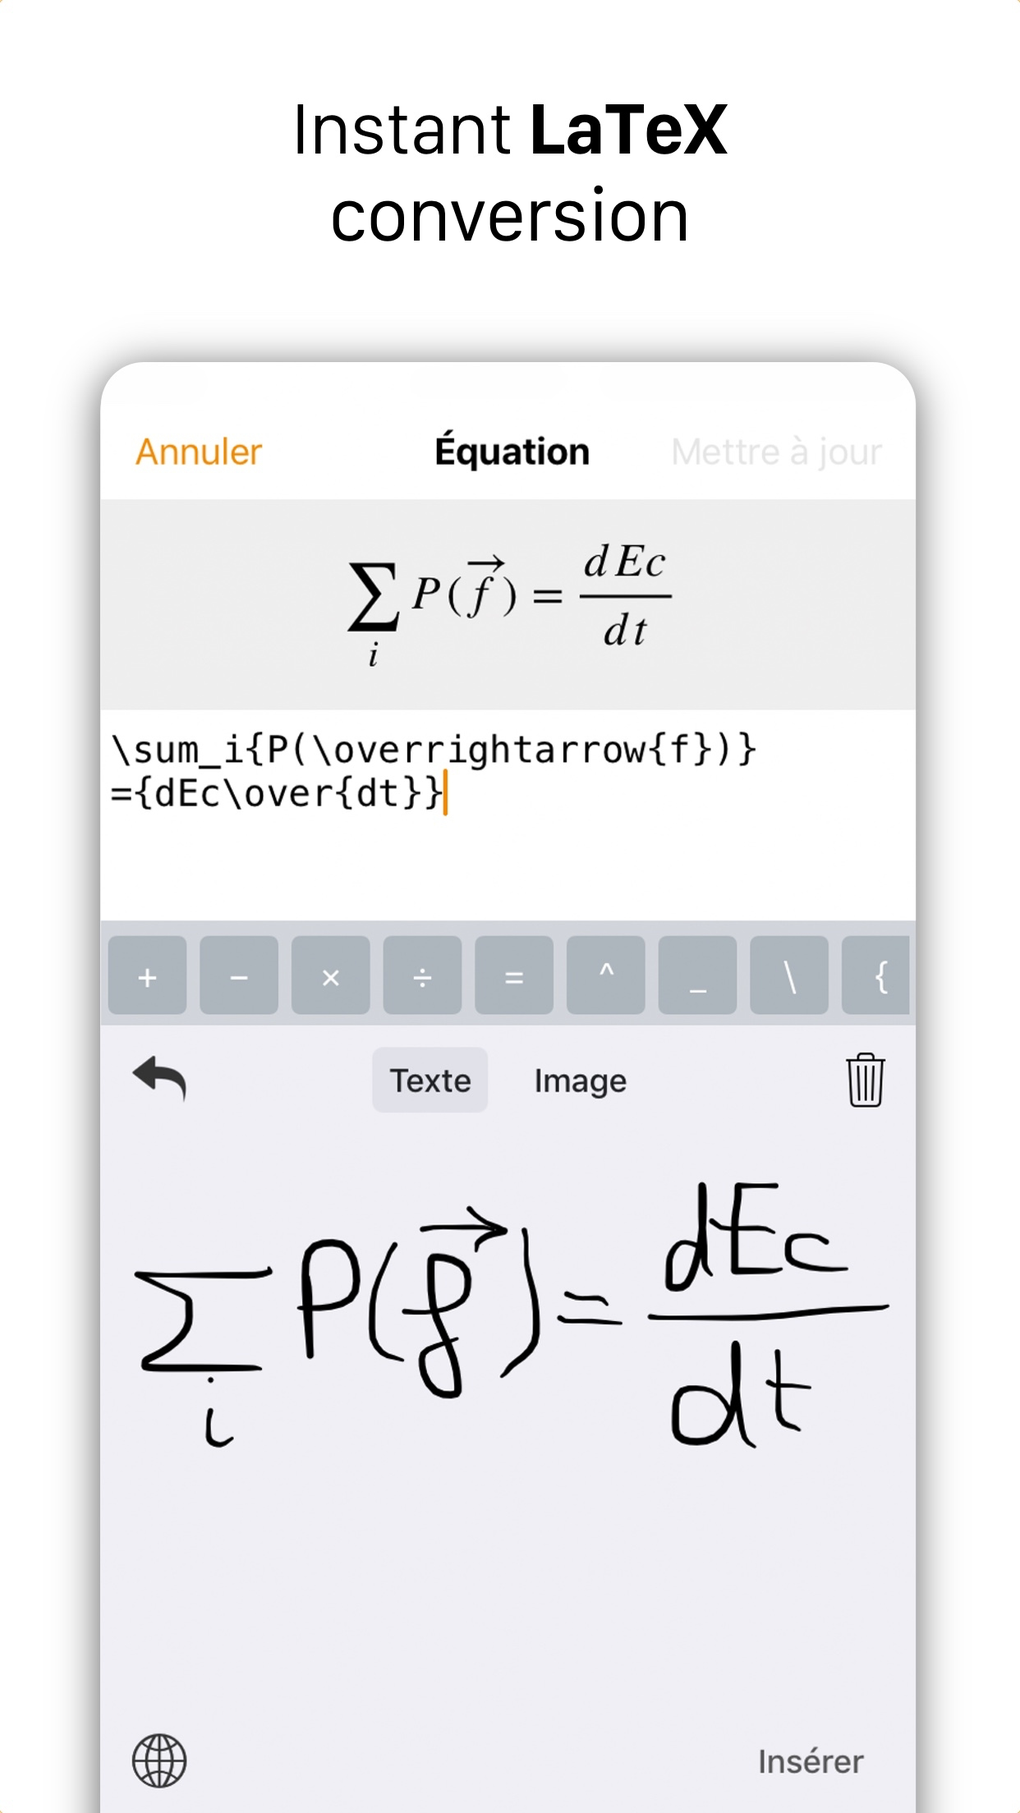 Instant LaTeX
conversion
Annuler Équation Mettre à jour
∑ P(f⃗) = dEc
i dt
\sum_i{P(\overrightarrow{f})}
={dEc\over{dt}}
+ − × ÷ = ^ _ \ {
Texte Image
∑ P(f⃗) = dEc
i dt
Insérer